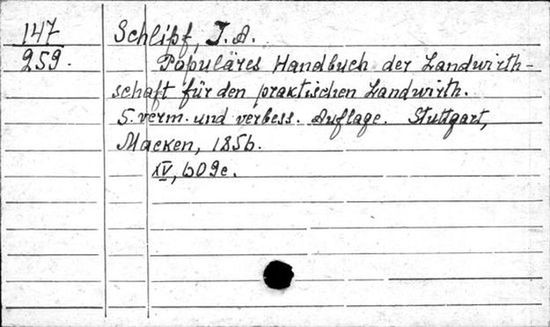 147
259.
Schlipf, J. A.
Populäres Handbuch der Landwirth-
schaft für den praktischen Landwirth.
5. verm. und verbess. Auflage. Stuttgart,
Macken, 1856.
XV, 609 c.